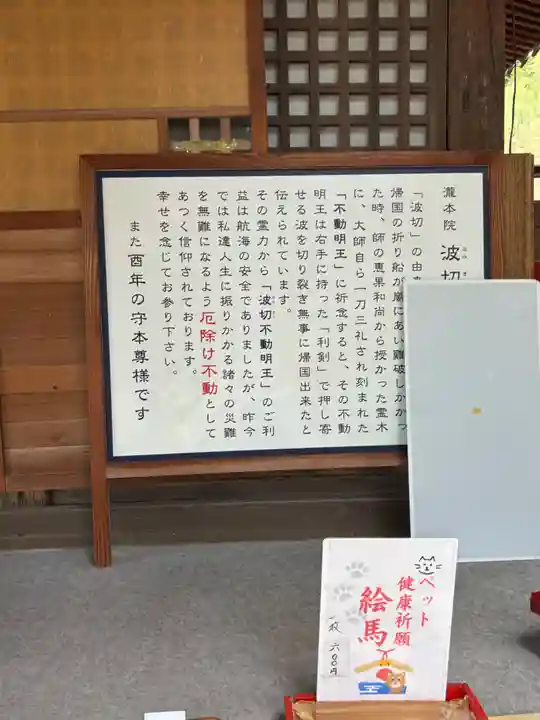 瀧本院 波切
ふ み
「波切」の由
帰国の折り船が嵐にあい難破しかかっ
た時、師の恵果和尚から授かった霊木
に、大師自ら一刀三礼され刻まれた
「不動明王」に祈念すると、その不動
明王は右手に持った「利剣」で押し寄
せる波を切り裂き無事に帰国出来たと
伝えられています。
その霊力から「波切不動明王」のご利
益は航海の安全でありましたが、昨今
では私達人生に振りかかる諸々の災難
を無難になるよう厄除け不動として
あつく信仰されております。
幸せを念じてお参り下さい。
また酉年の守本尊様です
ペット
健康祈願
絵馬
一枚 六〇〇円